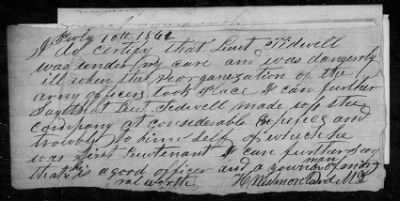 July 10th 1862
I do certify that Lieut Tidwell
was under my care and was dangerly
ill when the reorganization of the
army officers took place I can further
Say that Lieut Tidwell made up the
company at considerable Expence and
trouble to him self of which he
was first Lieutenant I can further Say
that is a good officer and a young man of
ral worth